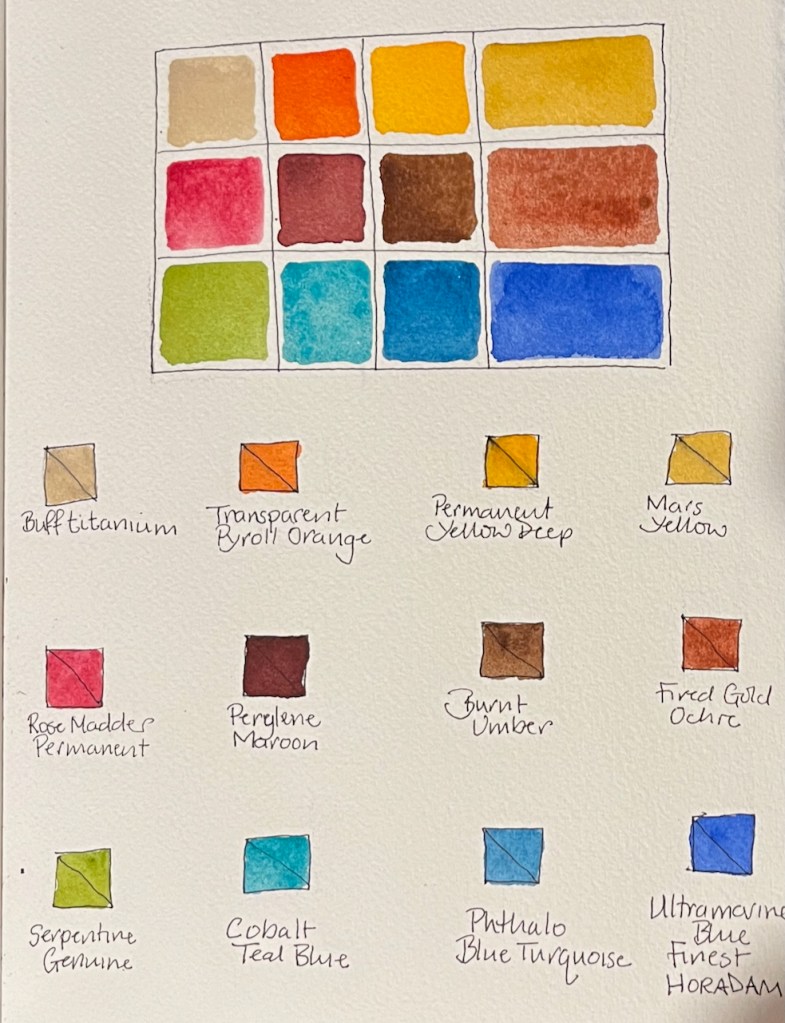 Buff titanium
Transparent
Pyroll Orange
Permanent
Yellow Deep
Mars
Yellow
Rose Madder
Permanent
Perylene
Maroon
Burnt
Umber
Fired Gold
Ochre
Serpentine
Genuine
Cobalt
Teal Blue
Phthalo
Blue Turquoise
Ultramarine
Blue
Finest
HORADAM